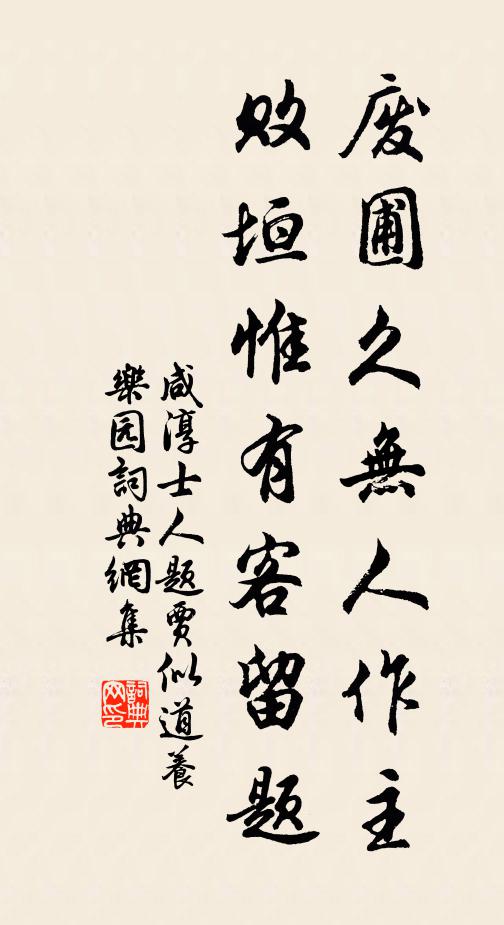 废圃久無人作主
败垣惟有客留题
咸淳士人题贾似道養
樂园詞典網集
詞典网印